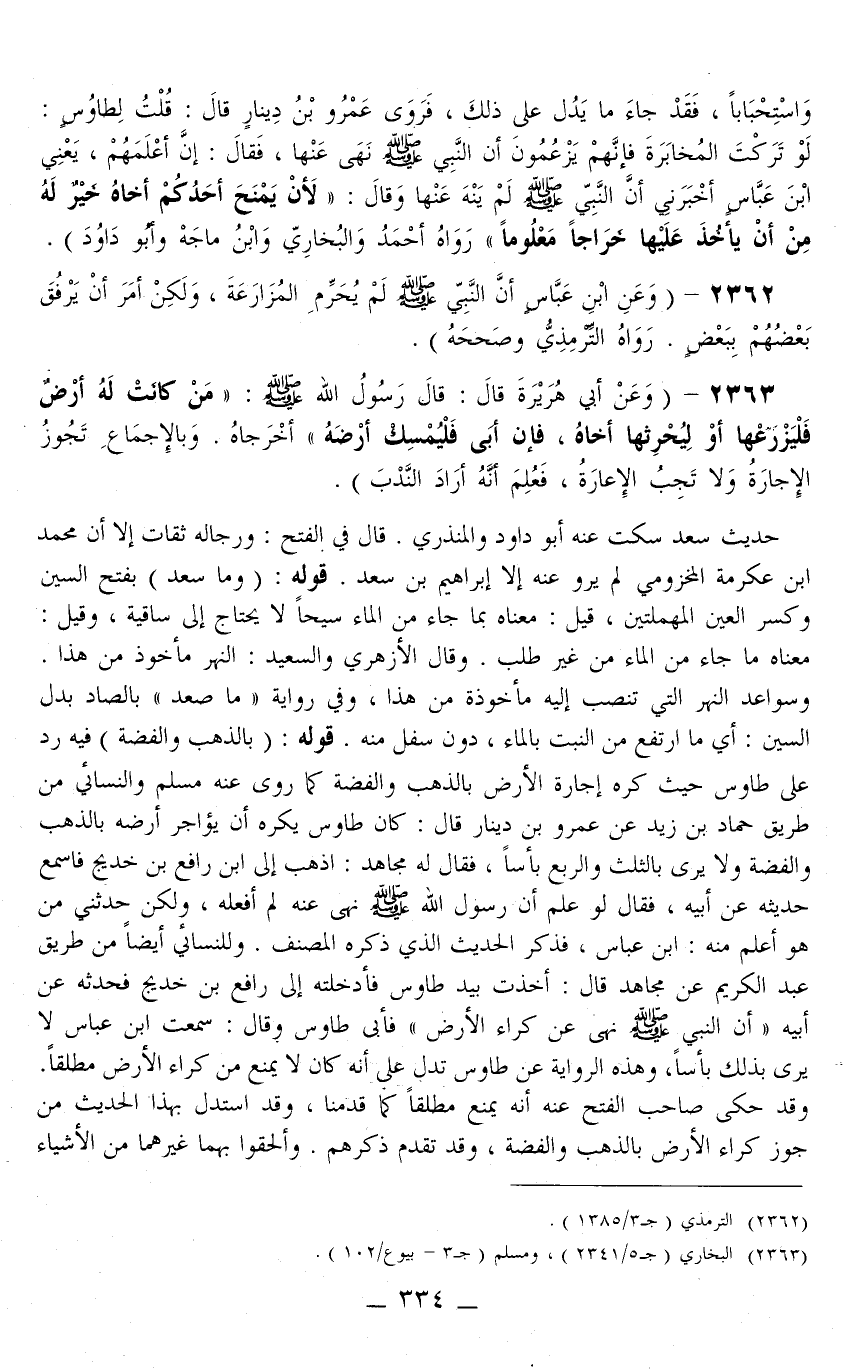 وَاسْتِحْبَاباً ، فَقَدْ جاءَ ما يَدُل على ذلكَ ، فَرَوَى عَمْرُو بْنُ دِينارٍ قالَ : قُلْتُ لِطاوُسٍ :
لَوْ تَرَكْتَ المُخابَرَةَ فإنَّهمْ يَزْعُمُونَ أن النَّبي ﷺ نَهَى عَنْها ، فَقالَ : إنَّ أعْلَمَهُمْ ، يَعْنِي
ابْنَ عَبَّاسٍ أخْبَرَنِي أنَّ النَّبِيّ ﷺ لَمْ يَنْهَ عَنْها وَقالَ : « لَأنْ يَمْنَحَ أحَدُكُمْ أخاهُ خَيْرٌ لَهُ
مِنْ أنْ يأخُذَ عَلَيْها خَرَاجاً مَعْلُوماً » رَوَاهُ أحْمَدُ وَالبُخارِيّ وَابْنُ ماجَهْ وأبُو دَاوُدَ ) .
٢٣٦٢ – ( وَعَنِ ابْنِ عَبَّاسٍ أنَّ النَّبِيّ ﷺ لَمْ يُحَرِّمِ المُزَارَعَةَ ، وَلَكِنْ أمَرَ أنْ يَرْفُقَ
بَعْضُهُمْ بِبَعْضٍ . رَوَاهُ التِّرْمِذِيُّ وصَححَهُ ) .
٢٣٦٣ – ( وَعَنْ أبي هُرَيْرَةَ قالَ : قالَ رَسُولُ الله ﷺ : « مَنْ كانَتْ لَهُ أرْضٌ
فَلْيَزْرَعْها أوْ لِيُحْرِثها أخاهُ ، فإن أبَى فَلْيُمْسِكْ أرْضَهُ » أخْرَجاهُ . وَبالإِجمَاعِ تَجُوزُ
الإِجارَةُ وَلا تَجِبُ الإِعارَةُ ، فَعُلِمَ أنَّهُ أرَادَ النَّدْبَ ) .
حديث سعد سكت عنه أبو داود والمنذري . قال في الفتح : ورجاله ثقات إلا أن محمد
ابن عكرمة المخزومي لم يرو عنه إلا إبراهيم بن سعد . قوله : ( وما سعد ) بفتح السين
وكسر العين المهملتين ، قيل : معناه بما جاء من الماء سيحاً لا يحتاج إلى ساقية ، وقيل :
معناه ما جاء من الماء من غير طلب . وقال الأزهري والسعيد : النهر مأخوذ من هذا .
وسواعد النهر التي تنصب إليه مأخوذة من هذا ، وفي رواية « ما صعد » بالصاد بدل
السين : أي ما ارتفع من النبت بالماء ، دون سفل منه . قوله : ( بالذهب والفضة ) فيه رد
على طاوس حيث كره إجارة الأرض بالذهب والفضة كما روى عنه مسلم والنسائي من
طريق حماد بن زيد عن عمرو بن دينار قال : كان طاوس يكره أن يؤاجر أرضه بالذهب
والفضة ولا يرى بالثلث والربع بأساً ، فقال له مجاهد : اذهب إلى ابن رافع بن خديج فاسمع
حديثه عن أبيه ، فقال لو علم أن رسول الله ﷺ نهى عنه لم أفعله ، ولكن حدثني من
هو أعلم منه : ابن عباس ، فذكر الحديث الذي ذكره المصنف . وللنسائي أيضاً من طريق
عبد الكريم عن مجاهد قال : أخذت بيد طاوس فأدخلته إلى رافع بن خديج فحدثه عن
أبيه « أن النبي ﷺ نهى عن كراء الأرض » فأبى طاوس وقال : سمعت ابن عباس لا
يرى بذلك بأساً، وهذه الرواية عن طاوس تدل على أنه كان لا يمنع من كراء الأرض مطلقاً.
وقد حكى صاحب الفتح عنه أنه يمنع مطلقاً كما قدمنا ، وقد استدل بهذا الحديث من
جوز كراء الأرض بالذهب والفضة ، وقد تقدم ذكرهم . وألحقوا بهما غيرهما من الأشياء
(٢٣٦٢) الترمذي ( جـ٣/١٣٨٥ ) .
(٢٣٦٣) البخاري ( جـ٥/٢٣٤١ ) ، ومسلم ( جـ٣ – بيوع/١٠٢ ) .
ــ ٣٣٤ ــ